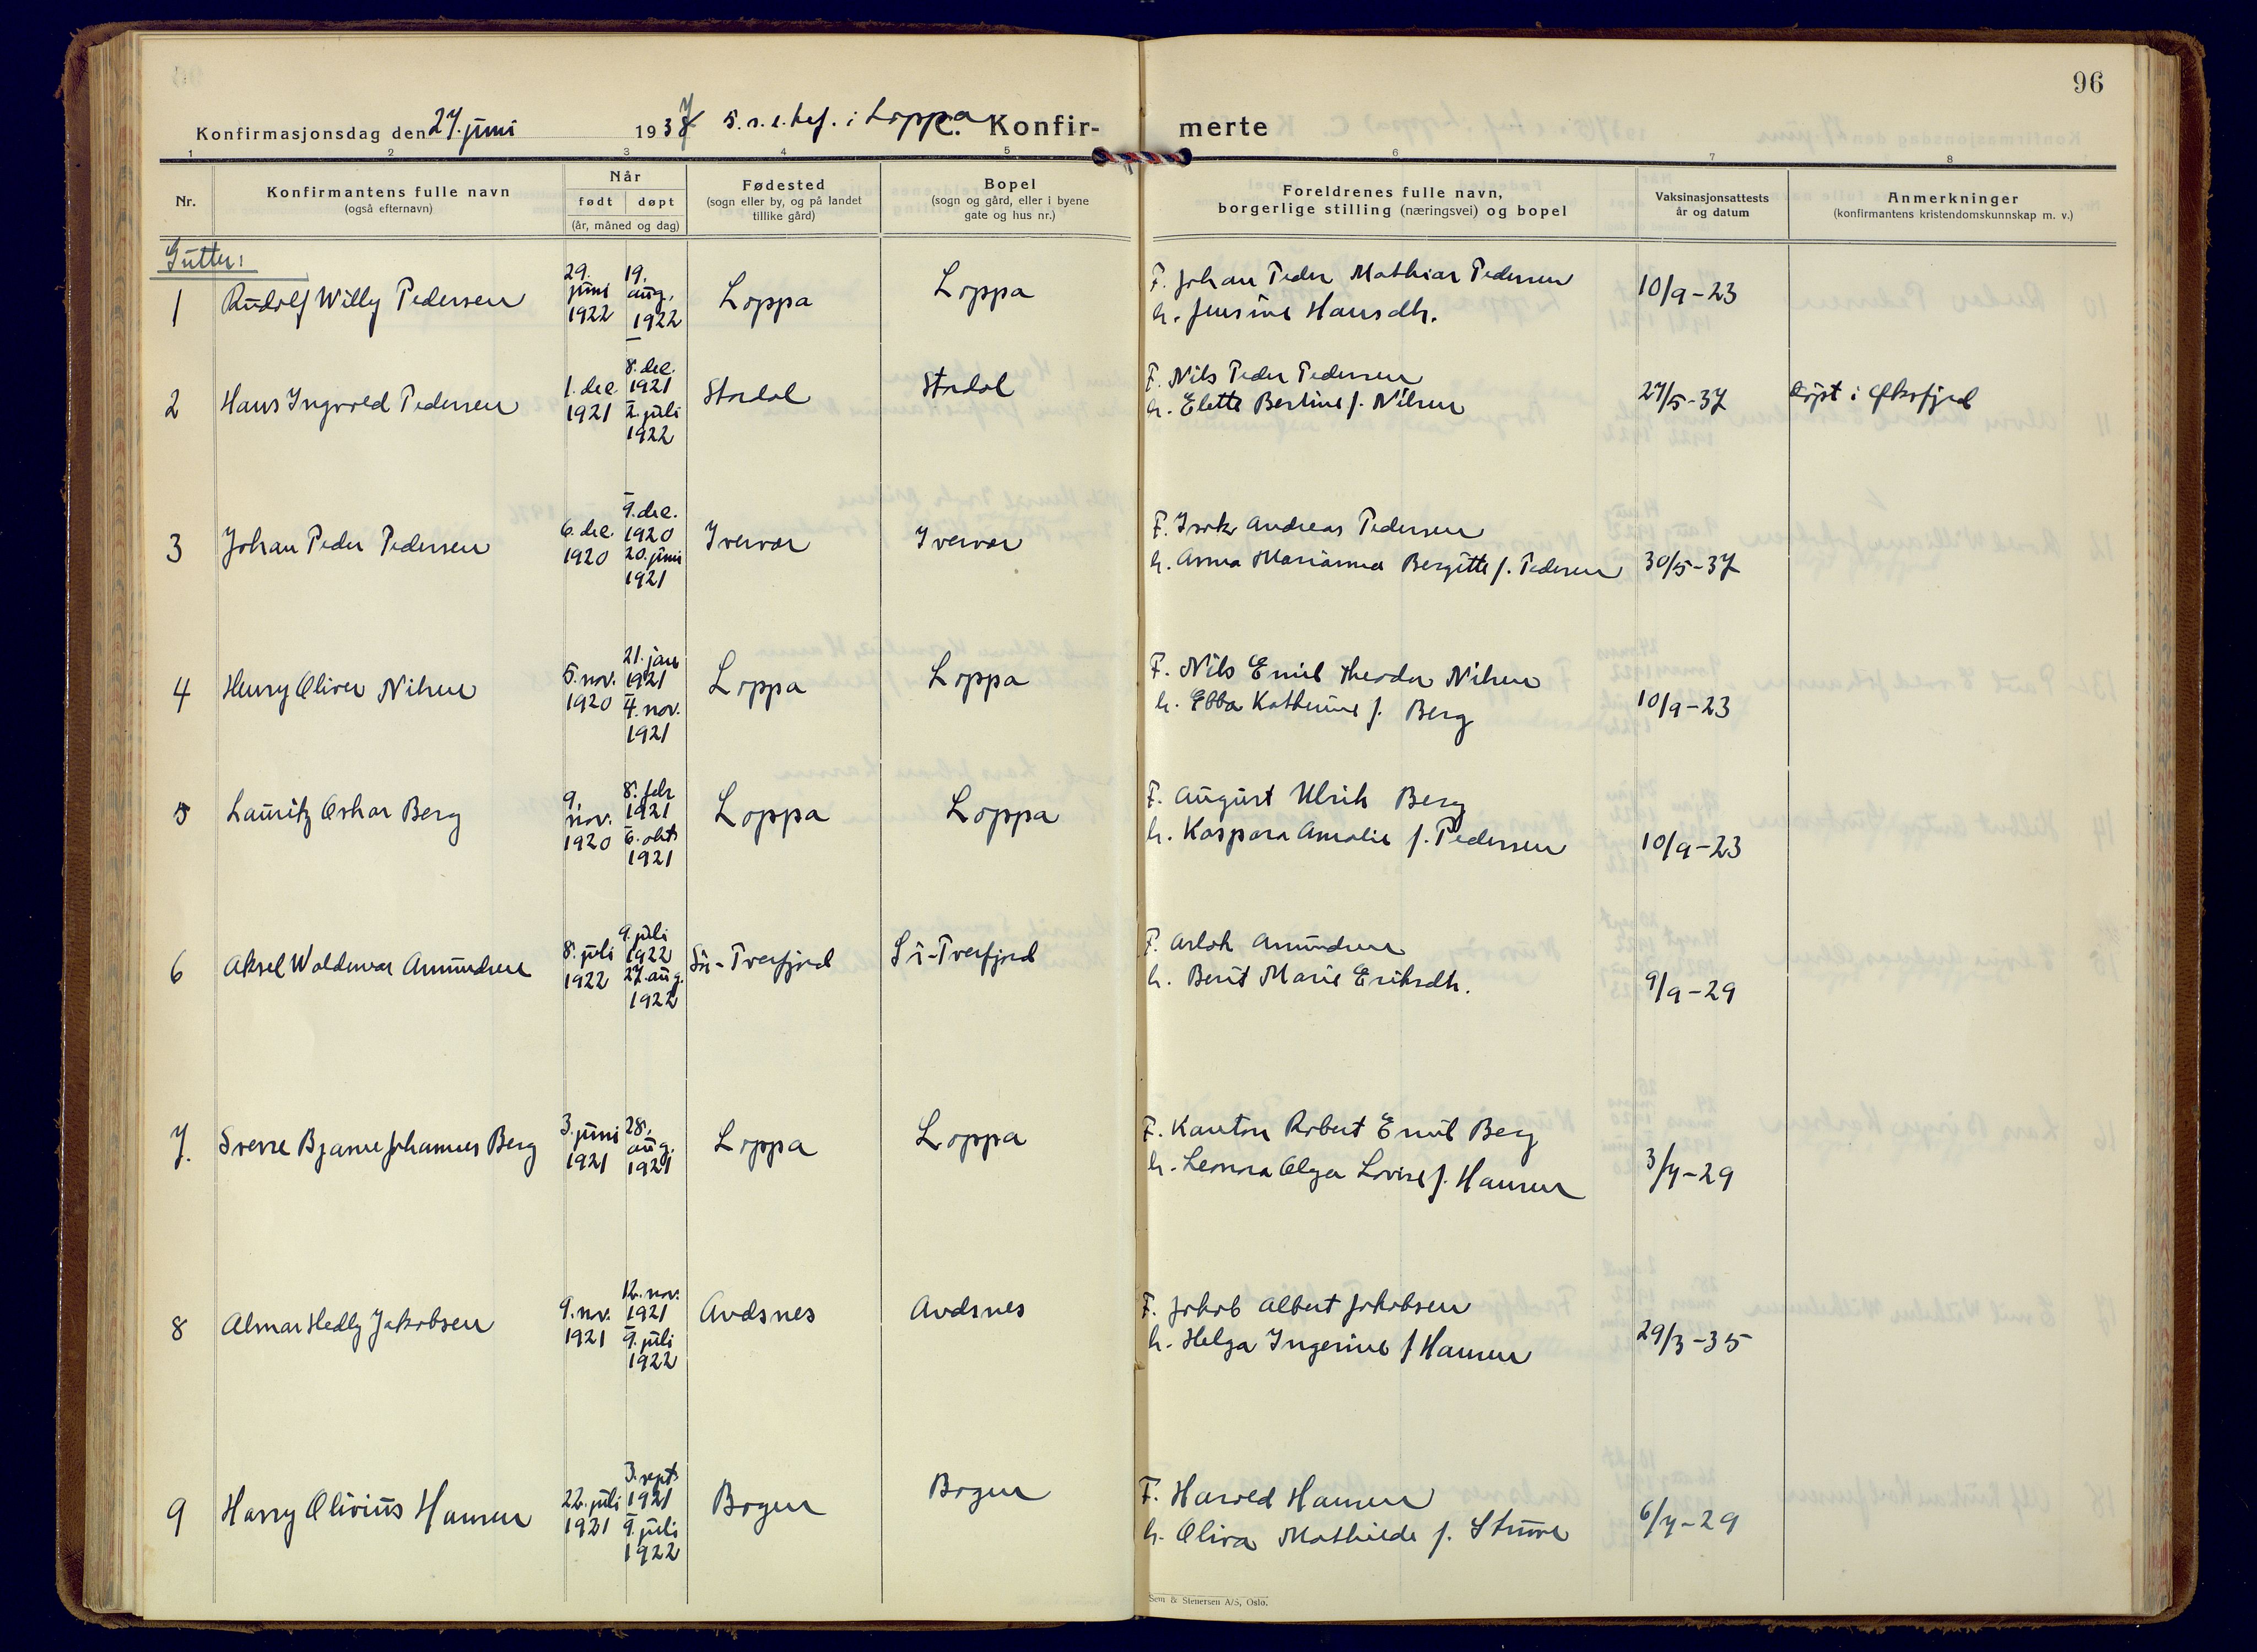 96
Konfirmasjonsdag den 27. juni 1937 5. s. e. tref. i Loppa C. Konfir- merte
1 2 3 4 5 6 7 8
Nr. Konfirmantens fulle navn (også efternavn) Når født døpt (år, måned og dag) Fødested (sogn eller by, og på landet tillike gård) Bopel (sogn og gård, eller i byene gate og hus nr.) Foreldrenes fulle navn, borgerlige stilling (næringsvei) og bopel Vaksinasjonsattests år og datum Anmerkninger (konfirmantens kristendomskunnskap m. v.)
Gutter:
1 Rudolf Willy Pedersen 29. juni 1922 19. aug. 1922 Loppa Loppa F. Johan Peder Mathias Pedersen 10/9-23
h. Jensine Hansdh.
2 Hans Ingvald Pedersen 1. des 1921 8. des. 1921 2. juli 1922 Stordal Stordal F. Nils Peder Pedersen 27/5-37 Döpt i Øksfjord
h. Elette Bertine f. Nilsen
3 Johan Peder Pedersen 6. des. 1920 9. des. 1920 20. juni 1921 Ivervær Ivervær F. Isak Andreas Pedersen
h. Anna Marianna Bergitte f. Pedersen 30/5-37
4 Henry Oliver Nilsen 5. nov. 1920 21. jan 1921 4. nov. 1921 Loppa Loppa F. Nils Emil Theodor Nilsen
h. Ebba Kathrine f. Berg 10/9-23
5 Lauritz Oskar Berg 9. nov. 1920 8. febr 1921 6. okt 1921 Loppa Loppa F. August Ulrik Berg
h. Kaspara Amalie f. Pedersen 10/9-23
6 Aksel Waldemar Amundsen 8. juli 1922 9. juli 1922 27. aug. 1922 Sör-Tverfjord Sör-Tverfjord F. Aslak Amundsen
h. Berit Marie Eriksdh. 9/9-29
7. Sverre Bjarne Johannes Berg 3. juni 1921 28. aug. 1921 Loppa Loppa F. Kanton Robert Emil Berg
h. Leonora Olga Lovise f. Hansen 3/7-29
8 Almar Hedly Jakobsen 9. nov. 1921 12. nov. 1921 9. juli 1922 Andsnes Andsnes F. Jakob Albert Jakobsen
h. Helga Ingerine f Hansen 29/3-35
9 Harry Olivius Hansen 22. juli 1921 3. sept 1921 9. juli 1922 Bogen Bogen F. Harald Hansen
h. Oliva Mathilde f. Struve 6/7-29
Sem & Stenersen A/S, Oslo.